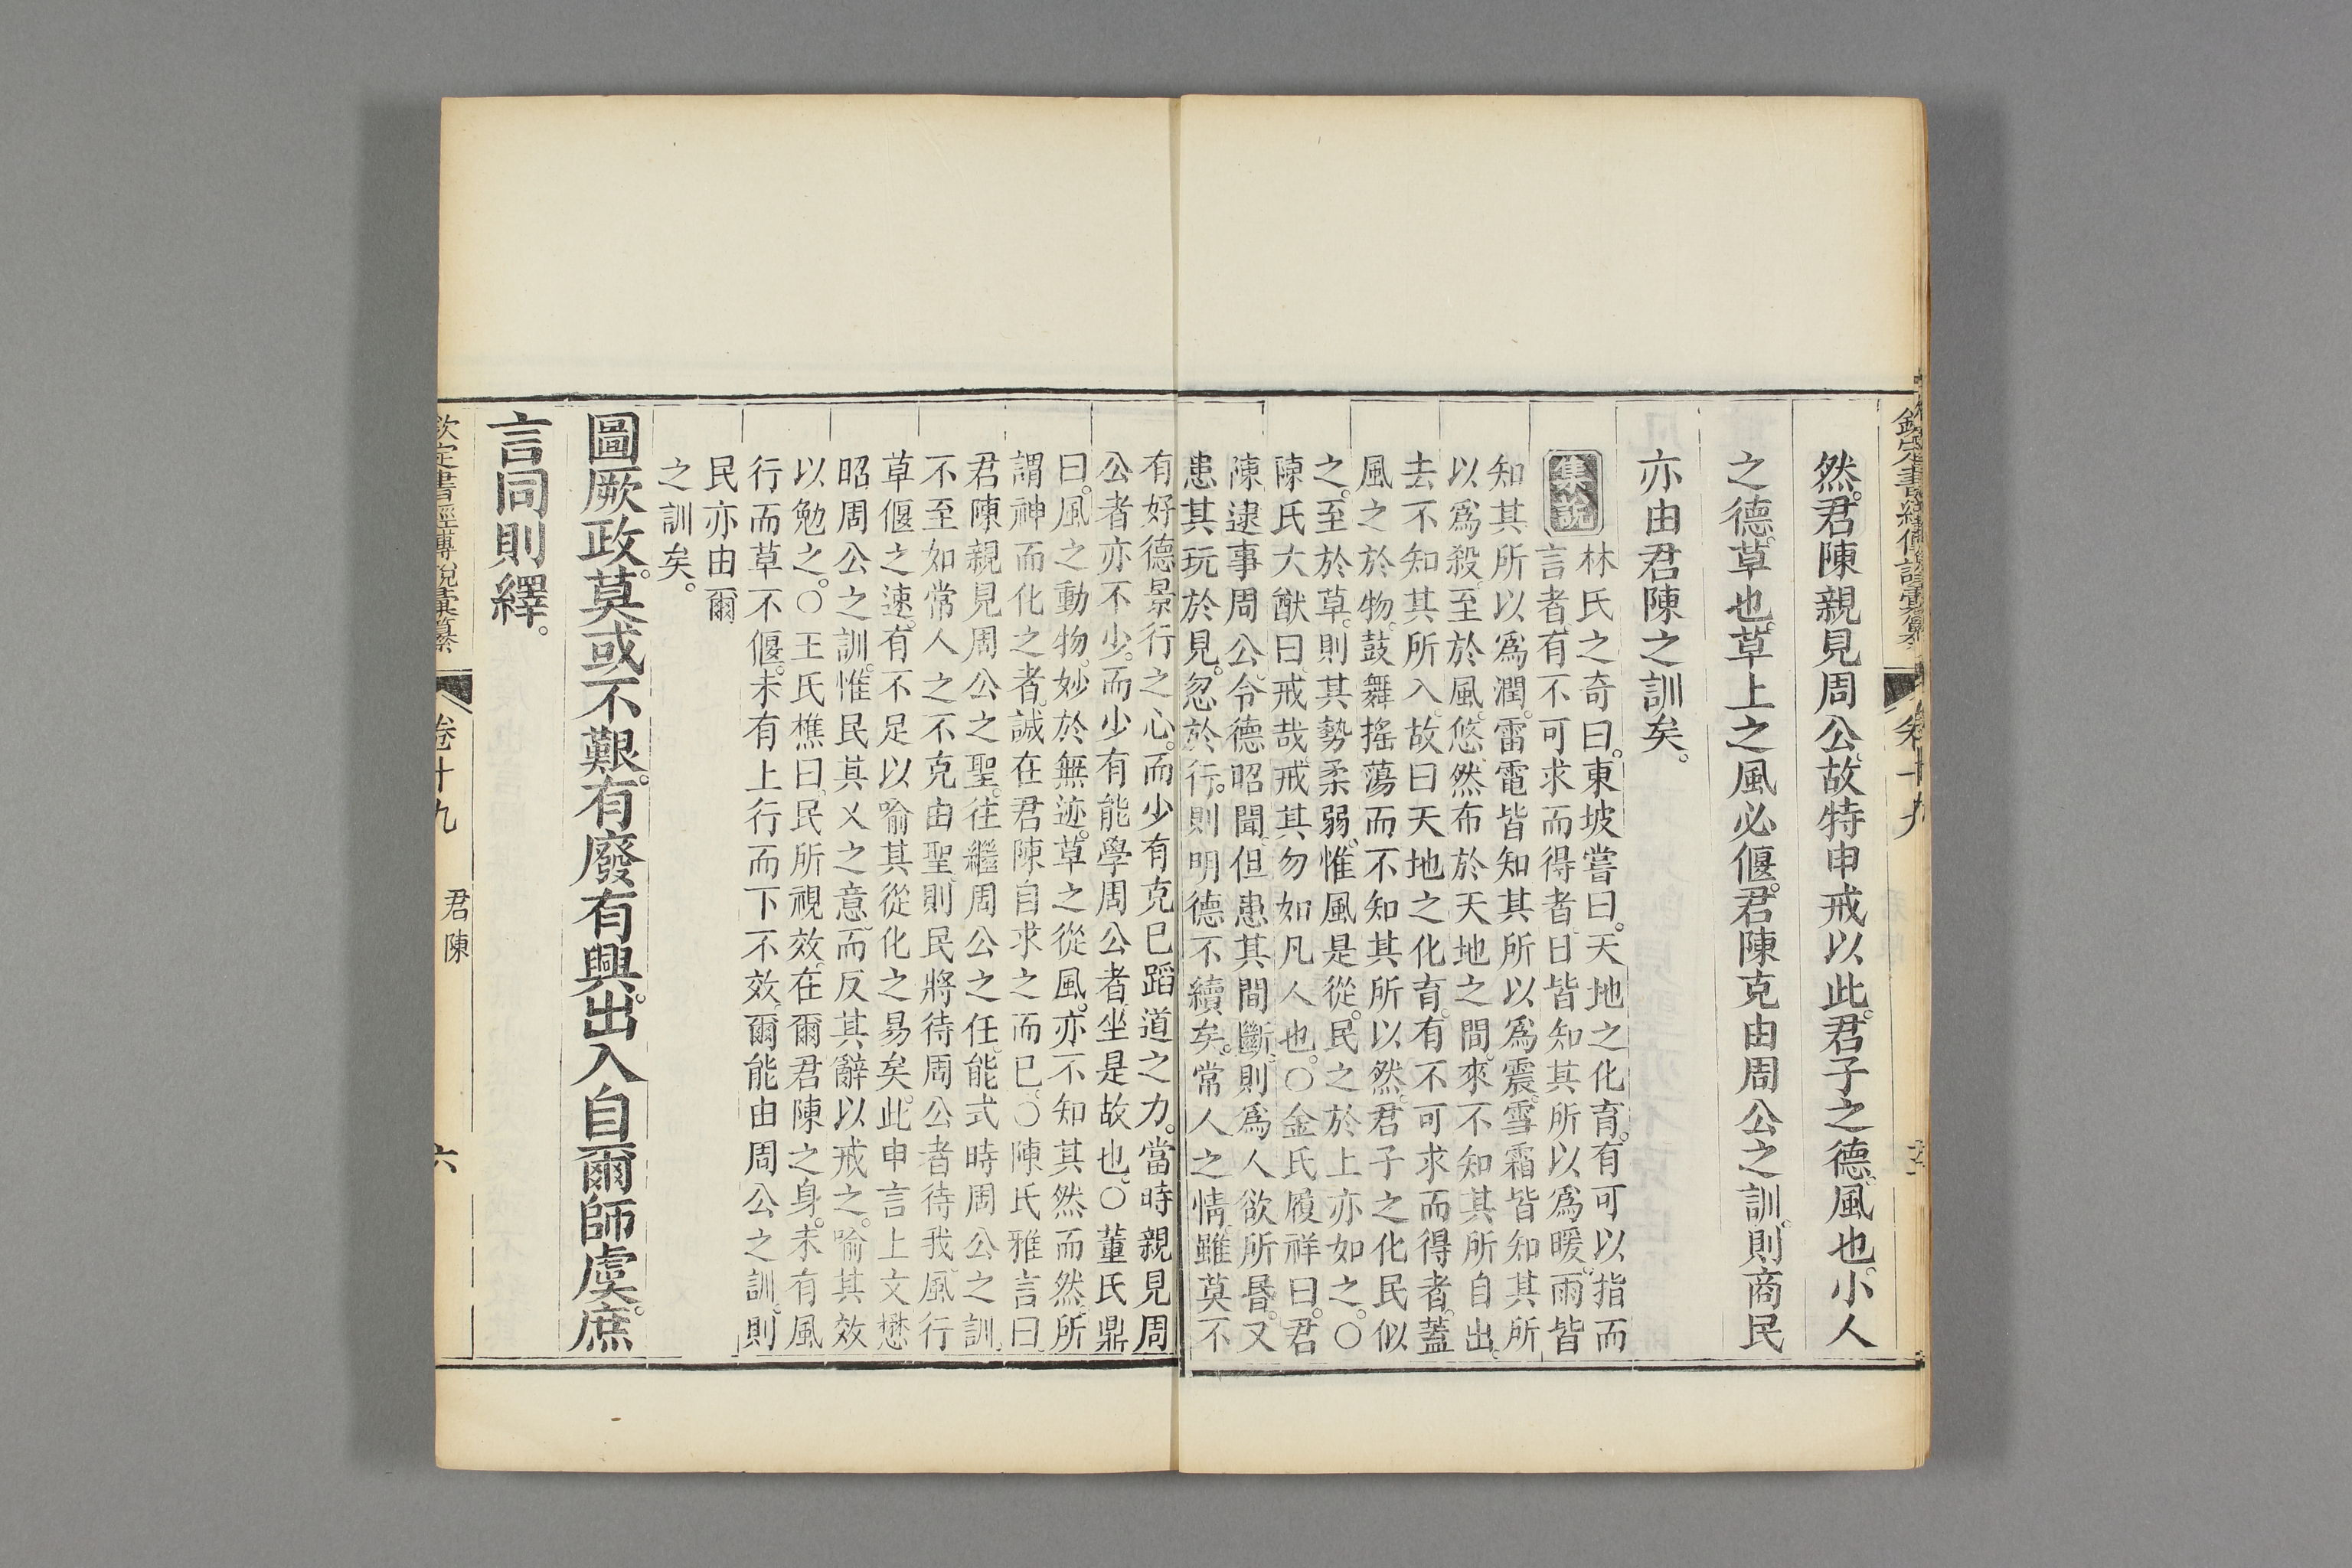 然。君陳親見周公。故特申戒以此。君子之德。風也。小人
之德。草也。草上之風必偃。君陳克由周公之訓。則商民
亦由君陳之訓矣。
集說
林氏之奇曰。東坡嘗曰。天地之化育。有可以指而
言者。有不可求而得者。日皆知其所以爲暖。雨皆
知其所以爲潤。雷電皆知其所以爲震。雪霜皆知其所
以爲殺。至於風。悠然布於天地之間。來不知其所自出。
去不知其所入。故曰天地之化育。有不可求而得者。蓋
風之於物。鼓舞搖蕩而不知其所以然。君子之化民似
之。至於草。則其勢柔弱。惟風是從。民之於上亦如之。○
陳氏大猷曰。戒哉。戒其勿如凡人也。○金氏履祥曰。君
陳逮事周公。令德昭聞。但患其間斷。則爲人欲所昬。又
患其玩於見。忽於行。則明德不續矣。常人之情。雖莫不
有好德景行之心。而少有克已蹈道之力。當時親見周
公者亦不少。而少有能學周公者。坐是故也。○董氏鼎
曰。風之動物。妙於無迹。草之從風。亦不知其然而然。所
謂神而化之者。誠在君陳自求之而已。○陳氏雅言曰
君陳親見周公之聖。往繼周公之任。能式時周公之訓。
不至如常人之不克由聖。則民將待周公者待我。風行
草偃之速。有不足以喻其從化之易矣。此申言上文懋
昭周公之訓。惟民其乂之意。而反其辭以戒之。喻其效
以勉之。○王氏樵曰。民所視效。在爾君陳之身。未有風
行而草不偃。未有上行而下不效。爾能由周公之訓。則
民亦由爾
之訓矣。
圖厥政。莫或不艱。有廢有興。出入自爾師虞。庶
言同則繹。
欽定書經傳說彙纂
卷十九
君陳
六